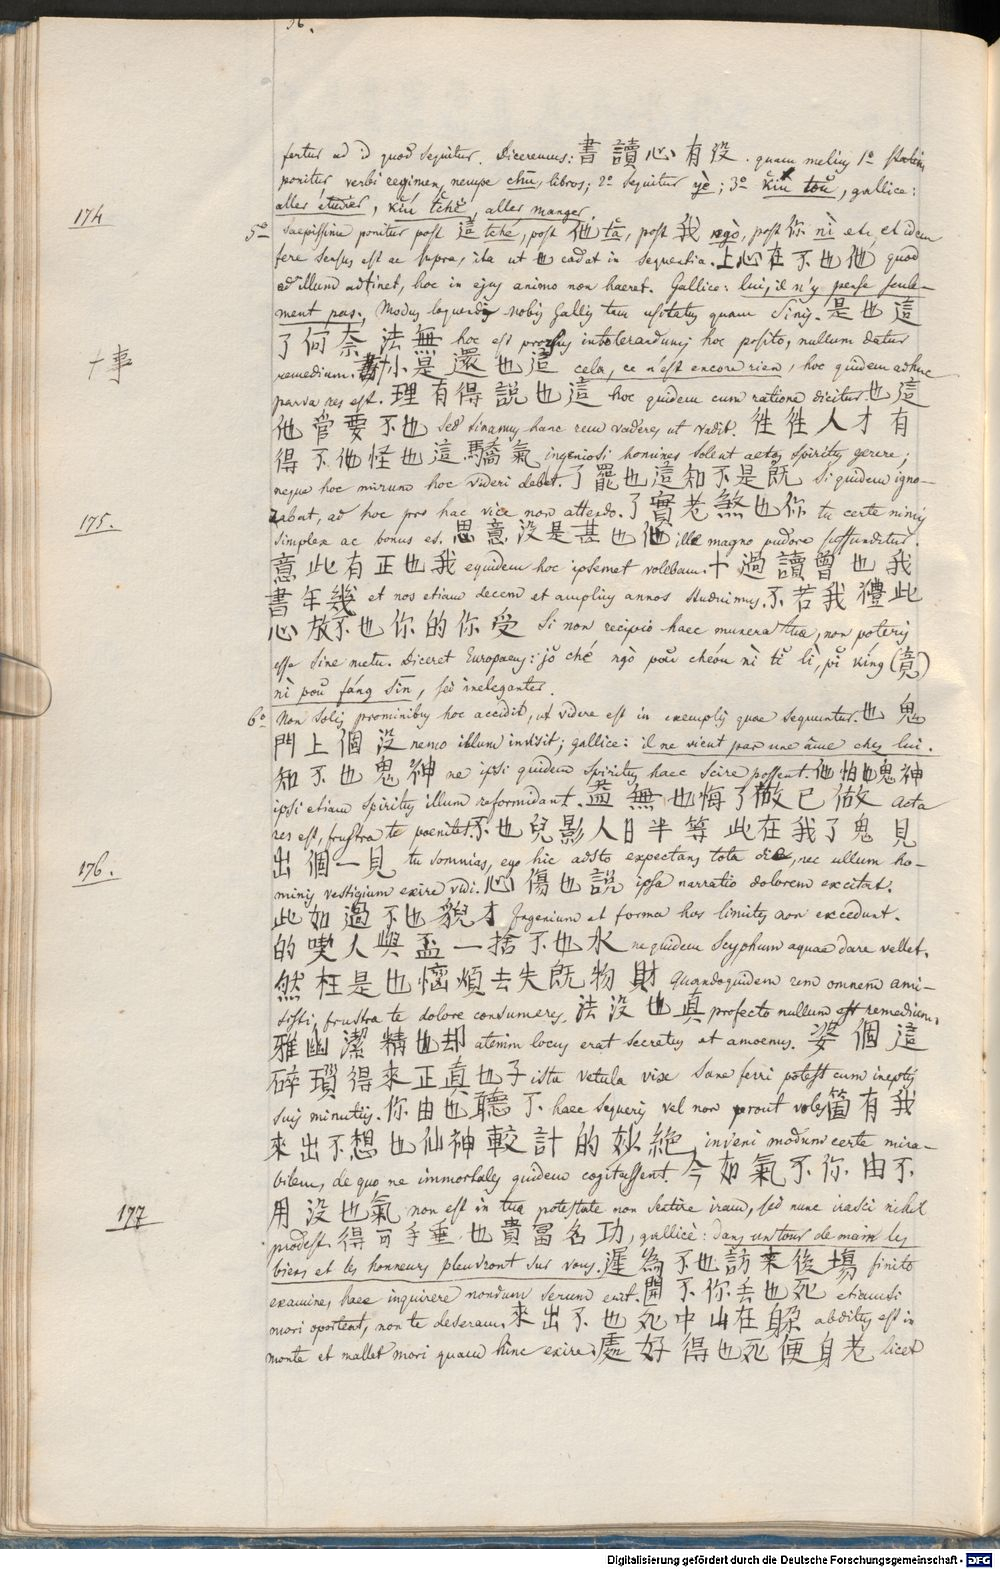 56.
fertur ad id quod sequitur. Diceremus: 書讀心有没. quam melius 1º
ponitur verbi regimen, nempe chū, libros; 2º sequitur yè; 3º kĭu toŭ, gallice:
aller étudier, kĭu tchĕ, aller manger.
174
5º Saepissime ponitur post 這 tché, post 他 tā, post 我 ngò, post 你 nì etc, et idem
fere sensus est ac supra, ita ut 也 cadat in sequentia. 上心在不也他 quod
ad illum adtinet, hoc in ejus animo non haeret. Gallice: lui, il n'y pense seule-
ment pas, Modus loquendi nobis Gallis tam usitatus quam Sinis. 是也這
了何奈法無 hoc est prorsus intolerandum; hoc posito, nullum datur
十事
remedium. 小是還也這 cela, ce n'est encore rien, hoc quidem adhuc
parva res est. 理有得説也這 hoc quidem cum ratione dicitur. 也這
他管要不也 sed sinamus hanc rem vadere ut vadit. 徃徃人才有
得不他怪也這驕氣 ingeniosi homines solent altos spiritus gerere;
neque hoc mirum hoc videri debet. 了罷也這知不是既 Si quidem igno-
175.
rabat, ad hoc pro hac vice non attendo. 了實老煞也你 tu certe nimis
simplex ac bonus es. 思意没是甚也他 ille magno pudore suffunditur.
意此有正也我 equidem hoc ipsemet volebam. 十過讀曾也我
書年幾 et nos etiam decem et amplius annos studuimus. 不若我禮此
心放不也你的你受 Si non recipio haec munera tua, non poteris
esse sine metu. Diceret Europaeus: jŏ ché ngò poŭ cheóu nì tĭ lì, pĭ kíng (竟)
nì poŭ fáng sīn, sed inelegantes.
6º Non solis prominibus hoc accidit, ut videre est in exemplis quae sequuntur. 也鬼
門上個没 nemo illum invisit; gallice: il ne vient pas une âme chez lui.
知不也鬼神 ne ipsi quidem spiritus haec scire possent. 他怕也鬼神
ipsi etiam spiritus illum reformidant. 益無也悔了做已做 acta
res est, frustra te poenitet. 不也兒影人日半等此在我了鬼見
176.
出個一見 tu somnias, ego hic adsto expectans tota die, nec ullum ho-
minis vestigium exire vidi. 心傷也説 ipsa narratio dolorem excitat.
此如過不也貌才 Ingenium et forma hos limites non excedunt.
的喫人與盃一捨不也水 ne quidem Scyphum aquae dare vellet.
然枉是也惱煩去失既物財 Quandoquidem rem omnem ami-
sisti, frustra te dolore consumeres. 法没也真 profecto nullum est remedium.
雅幽潔精也却 atenim locus erat secretus et amoenus. 婆個這
碎瑣得來正真也子 ista vetula vix sane ferri potest cum ineptis
suis minutiis. 你由也聽了 haec sequeris vel non prout voles 箇有我
來出不想也仙神較計的妙絶 inveni modum certe mira-
bilem, de quo ne immortales quidem cogitassent. 今如氣不你由不
177
用没也氣 non est in tua potestate non sentire iram, sed nunc irasci nihil
prodest. 得可手垂也貴富名功, gallicè: dans un tour de main les
biens et les honneurs pleuvront sur vous. 遲為不也訪来後塲 finito
examine, haec inquirere nondum serum erit. 開不你丢也死 etiamsi
mori oportent, non te deseram. 來出不也死中山在躱 abditus est in
monte et mallet mori quam hinc exire. 處好得也死便身老 licet
Digitalisierung gefördert durch die Deutsche Forschungsgemeinschaft - DFG